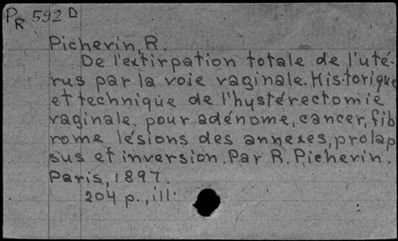 PR 592 D
Pichevin, R.
De l'extirpation totale de l'uté-
rus par la voie vaginale. Historique
et technique de l'hystérectomie
vaginale, pour adénome, cancer, fib
rome, lésions des annexes, prolap
sus et inversion. Par R. Pichevin.
Paris, 1897.
204 p., ill.